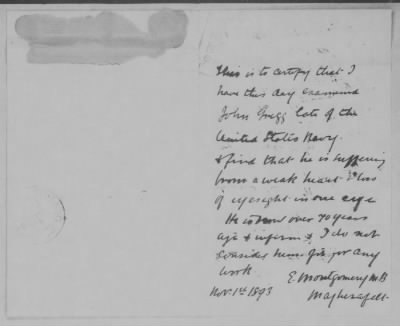 This is to certify that I
have this day examined
John Gregg late of the
United States Navy.
& find that he is suffering
from a weak heart & loss
of eyesight in one eye
He is now over 70 years
age & infirm & I do not
consider him fit for any
work.
E Montgomery MB
Nov. 1st 1893
Magherafelt.